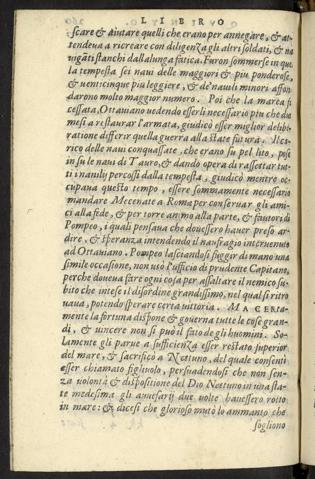 LIBRO
scare & aiutare quelli che erano per annegare, & at-
tendeua a ricreare con diligenza gli altri soldati, & na
uiganti stanchi dalla lunga fatica. Furon sommerse in que
la tempesta sei naui delle maggiori & piu ponderose,
& uenticinque piu leggiere, & de nauili minori affon
darono molto maggior numero. Poi che la marea fu
cessata, Ottauiano uedendo esserli necessario piu che due
mesi a restaurar l'armata, giudicò esser miglior delibe-
ratione differir quella guerra alla state futura. Il ca
rico delle naui conquassate, che erano su pel lito, pose
in su le naui di Tauro, & dando opera di rassettar tut-
ti i nauily percossi dalla tempesta, giudicò mentre oc-
cupaua questo tempo, essere sommamente necessario
mandare Mecenate a Roma per conseruar gli ami-
ci alla fede, & per torre animo alla parte, & fautori di
Pompeo, i quali pensaua che douessero hauer preso ar-
dire, & speranza intendendo il naufragio interuenuto
ad Ottauiano. Pompeo lasciandosi fuggir di mano una
simile occasione, non usò l'ufficio di prudente Capitano,
perche doueua fare ogni cosa per assaltare il nemico su-
bito che intese il disordine grandissimo, nel qual si ritro
uaua, potendo sperare certa uittoria. MA CERTA-
mente la fortuna dispone & gouerna tutte le cose gran-
di, & uincere non si può il fato degli huomini. So-
lamente gli parue a sufficienza esser restato superior
del mare, & sacrificò a Nettuno, del quale consenti
esser chiamato figliuolo, persuadendosi che non sen-
za uolontà & dispositione del Dio Nettuno in una sta-
te medesima gli auuersarij due uolte hauessero rotto
in mare: & dicesi che glorioso mutò lo ammanto che
sogliono